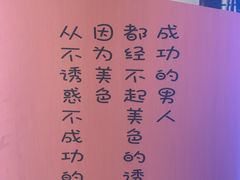 成功的男人
都经不起美色的诱
因为美色
从不诱惑不成功的